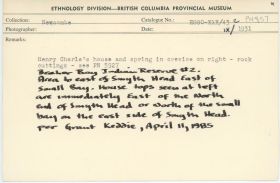 ETHNOLOGY DIVISION—BRITISH COLUMBIA PROVINCIAL MUSEUM
Collection: Catalogue No.: PN957
Photographer: Date: IX / 1931
Remarks:
Henry Charle's house and spring in crevice on right - rock
cuttings - see PN 5927
Becher Bay Indian Reserve #2.
Area to east of Smyth Head East of
Small Bay. House tops seen at left
are immediately East of the North
end of Smyth Head or North of the small
bay on the east side of Smyth Head.
per Grant Keddie, April 11, 1985